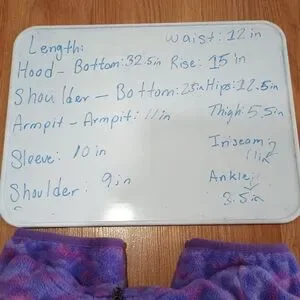 Length:
Waist: 12 in
Hood - Bottom: 32.5in
Rise: 15 in
Shoulder - Bottom: 25in
Hips: 12.5in
Armpit - Armpit: 11in
Thigh: 5.5in
Sleeve: 10 in
Inseam:
11in
Shoulder: 9in
Ankle:
3.5in